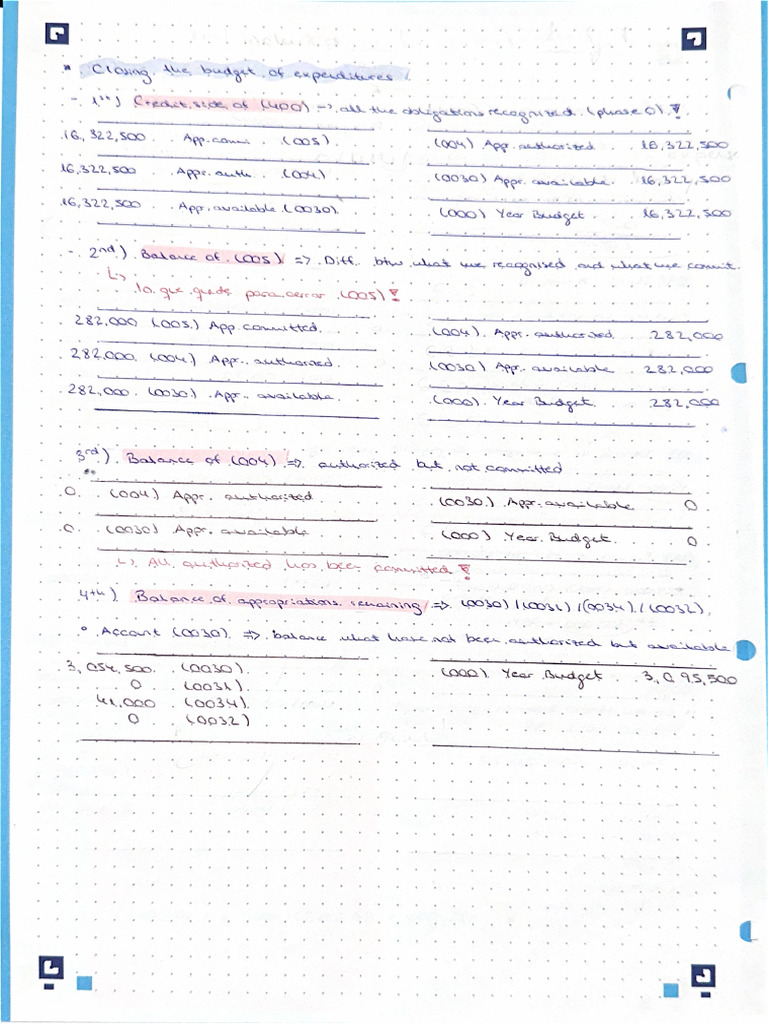 * Closing the budget of expenditures
- 1st) Credit side of (400) => all the obligations recognized (phase O)!
16,322,500 App. comm. (005) (004) App authorized 16,322,500
16,322,500 Appr. auth. (004) (0030) Appr. available 16,322,500
16,322,500 Appr. available (0030) (000) Year Budget 16,322,500
- 2nd) Balance of (005) => Diff. btw what we recognised and what we commit.
↳ lo que queda para cerrar (005)!
282,000 (005) App committed (004) Appr. authorized 282,000
282,000 (004) Appr. authorized (0030) Appr. available 282,000
282,000 (0030) Appr. available (000) Year Budget 282,000
3rd) Balance of (004) => authorized but not committed
0 (004) Appr. authorized (0030) Appr. available 0
0 (0030) Appr. available (000) Year Budget 0
↳ All authorized has been committed!
4th) Balance of appropriations remaining => (0030) / (0031) / (0034) / (0032)
° Account (0030) => balance what have not been authorized but available
3,054,500 (0030) (000) Year Budget 3,095,500
0 (0031)
41,000 (0034)
0 (0032)